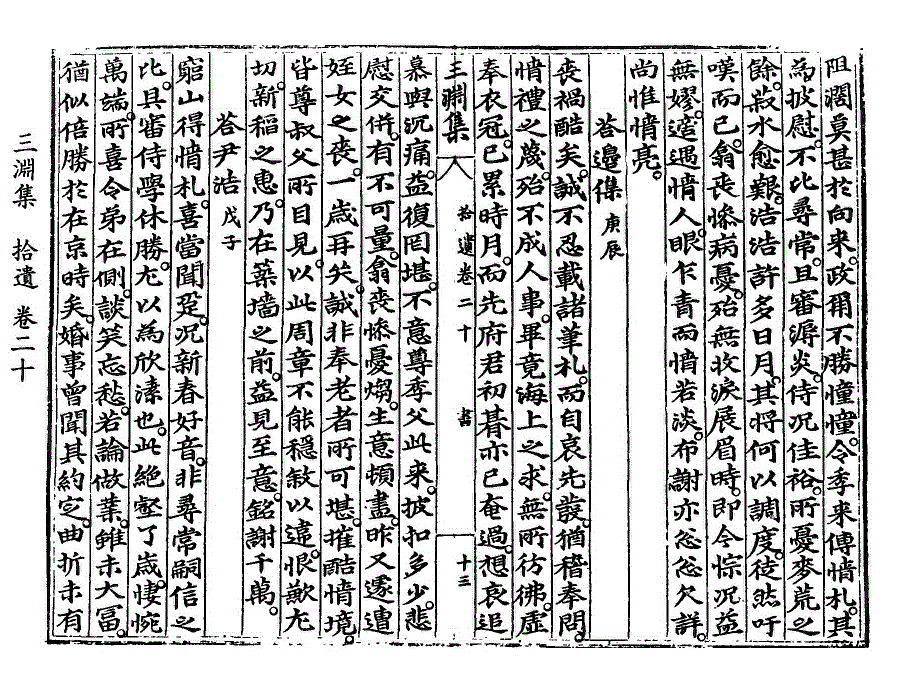 阻濶莫甚於向來。政爾不勝憧憧。令季來傳情札。其
為披慰。不比尋常。且審溽炎。侍況佳裕。所憂麥荒之
餘。菽水愈艱。浩浩許多日月。其將何以調度。徒然吁
嘆而已。翕喪慘病憂。殆無收淚展眉時。即今悰況益
無嫪。遌遇情人。眼乍青而情若淡。布謝亦忽忽欠詳。
尚惟情亮。
答邊傑 庚辰
喪禍酷矣。誠不忍載諸筆札。而自哀先發。猶稽奉問。
情禮之蔑。殆不成人事。畢竟海上之求。無所彷彿。虛
奉衣冠。已累時月。而先府君初朞亦已奄過。想哀追
三淵集 拾遺卷二十 書 十三
慕與沉痛。益復罔堪。不意尊季父此來。披扣多少。悲
慰交倂。有不可量。翕喪慘憂煼。生意頓盡。昨又遽遭
姪女之喪。一歲再矣。誠非奉老者所可堪。摧酷情境。
皆尊叔父所目見。以此周章不能穩敘以違。恨歉尤
切。新稻之惠。乃在藥墻之前。益見至意。銘謝千萬。
答尹浩 戊子
窮山得情札。喜當聞跫。况新春好音。非尋常嗣信之
比。具審侍學休勝。尤以為欣溸也。此絶壑了歲。悽惋
萬端。所喜令弟在側。談笑忘愁。若論做業。雖未大冨。
猶似倍勝於在京時矣。婚事曾聞其約定。曲折未有
三淵集 拾遺 卷二十